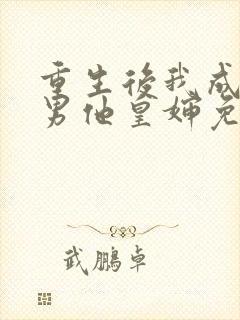 重生後我成
男他皇婶免
武鵬卓